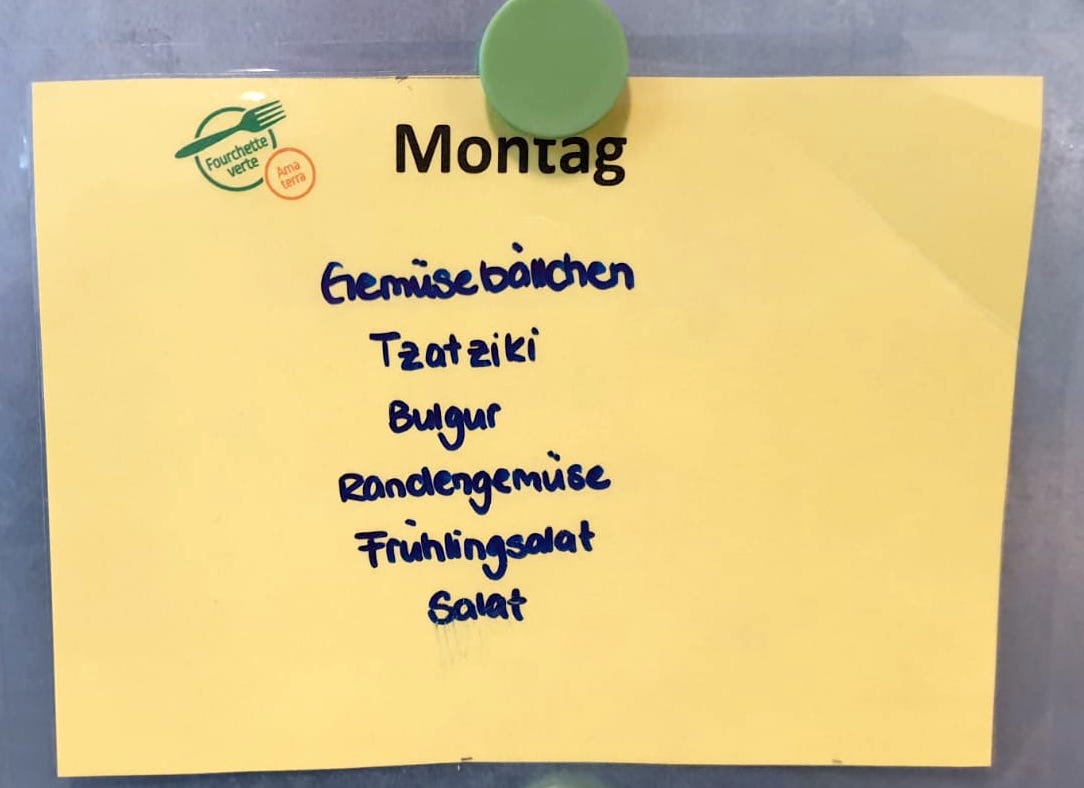 Fourchette
verte
Ama
terra
Montag
Gemüsebällchen
Tzatziki
Bulgur
Randengemüse
Frühlingsalat
Salat